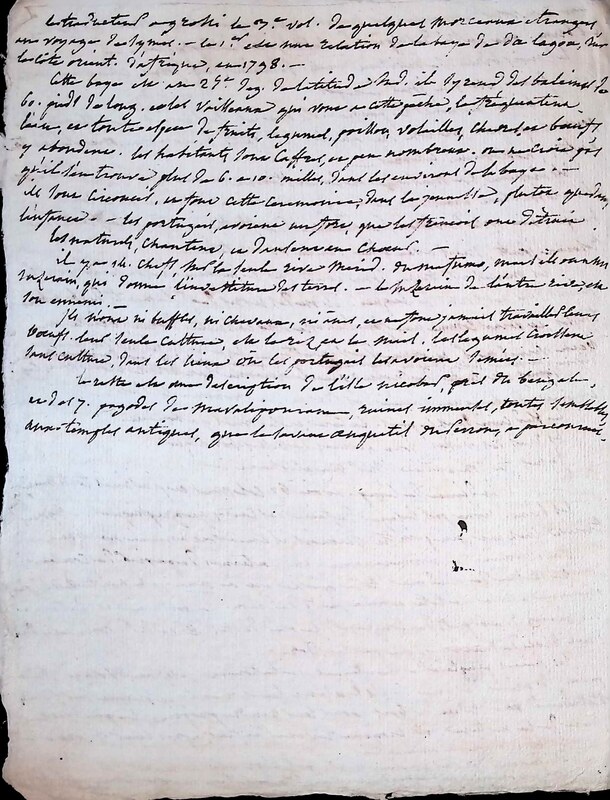 le traducteur a grossi le 3.e vol. de quelques morceaux étrangers
au voyage de Symes. - le 1.er est une relation de la baye de da lagoa, sur
la côte orient. d'afrique, en 1798. -
Cette baye est au 25.e deg. de latitude Sud. il s'y rend des baleines de
60. pieds de long. et les Vaisseaux qui vont à cette pêche, la fréquentent.
l'eau, et toute espece de fruits, legumes, poissons, volailles, chevres, et boeufs
y abondent. les habitants sont Caffres, et peu nombreux. on ne croit pas
qu'il s'en trouve plus de 6. à 10. milles, dans les environs de la baye. -
ils sont circoncis, et font cette ceremonie dans la jeunesse, plutôt que dans
l'enfance. - les portugais, avoient un fort, que les françois ont détruit.
les naturels, chantent, et dansent en Choeur. -
il y a chefs sur la seule rive Merid. du mafumo, mais ils ont un
suzerain, qui donne l'investiture des terres. - le suzerain de l'autre rive, est
son ennemi.
ils n'ont ni buffles, ni chevaux, ni anes, et ne font jamais travailler leurs
boeufs. leur seule culture, est le riz, et le maïs. les legumes croissent
sans culture, dans les lieux où les portugais les avoient semés. -
le reste est une description de l'isle nicobar, près du bengale,
et des 7. pagodes de mavalipouram, ruines immenses, toutes semblables
aux temples antiques, que le savant anquetil du perron, a parcourus.